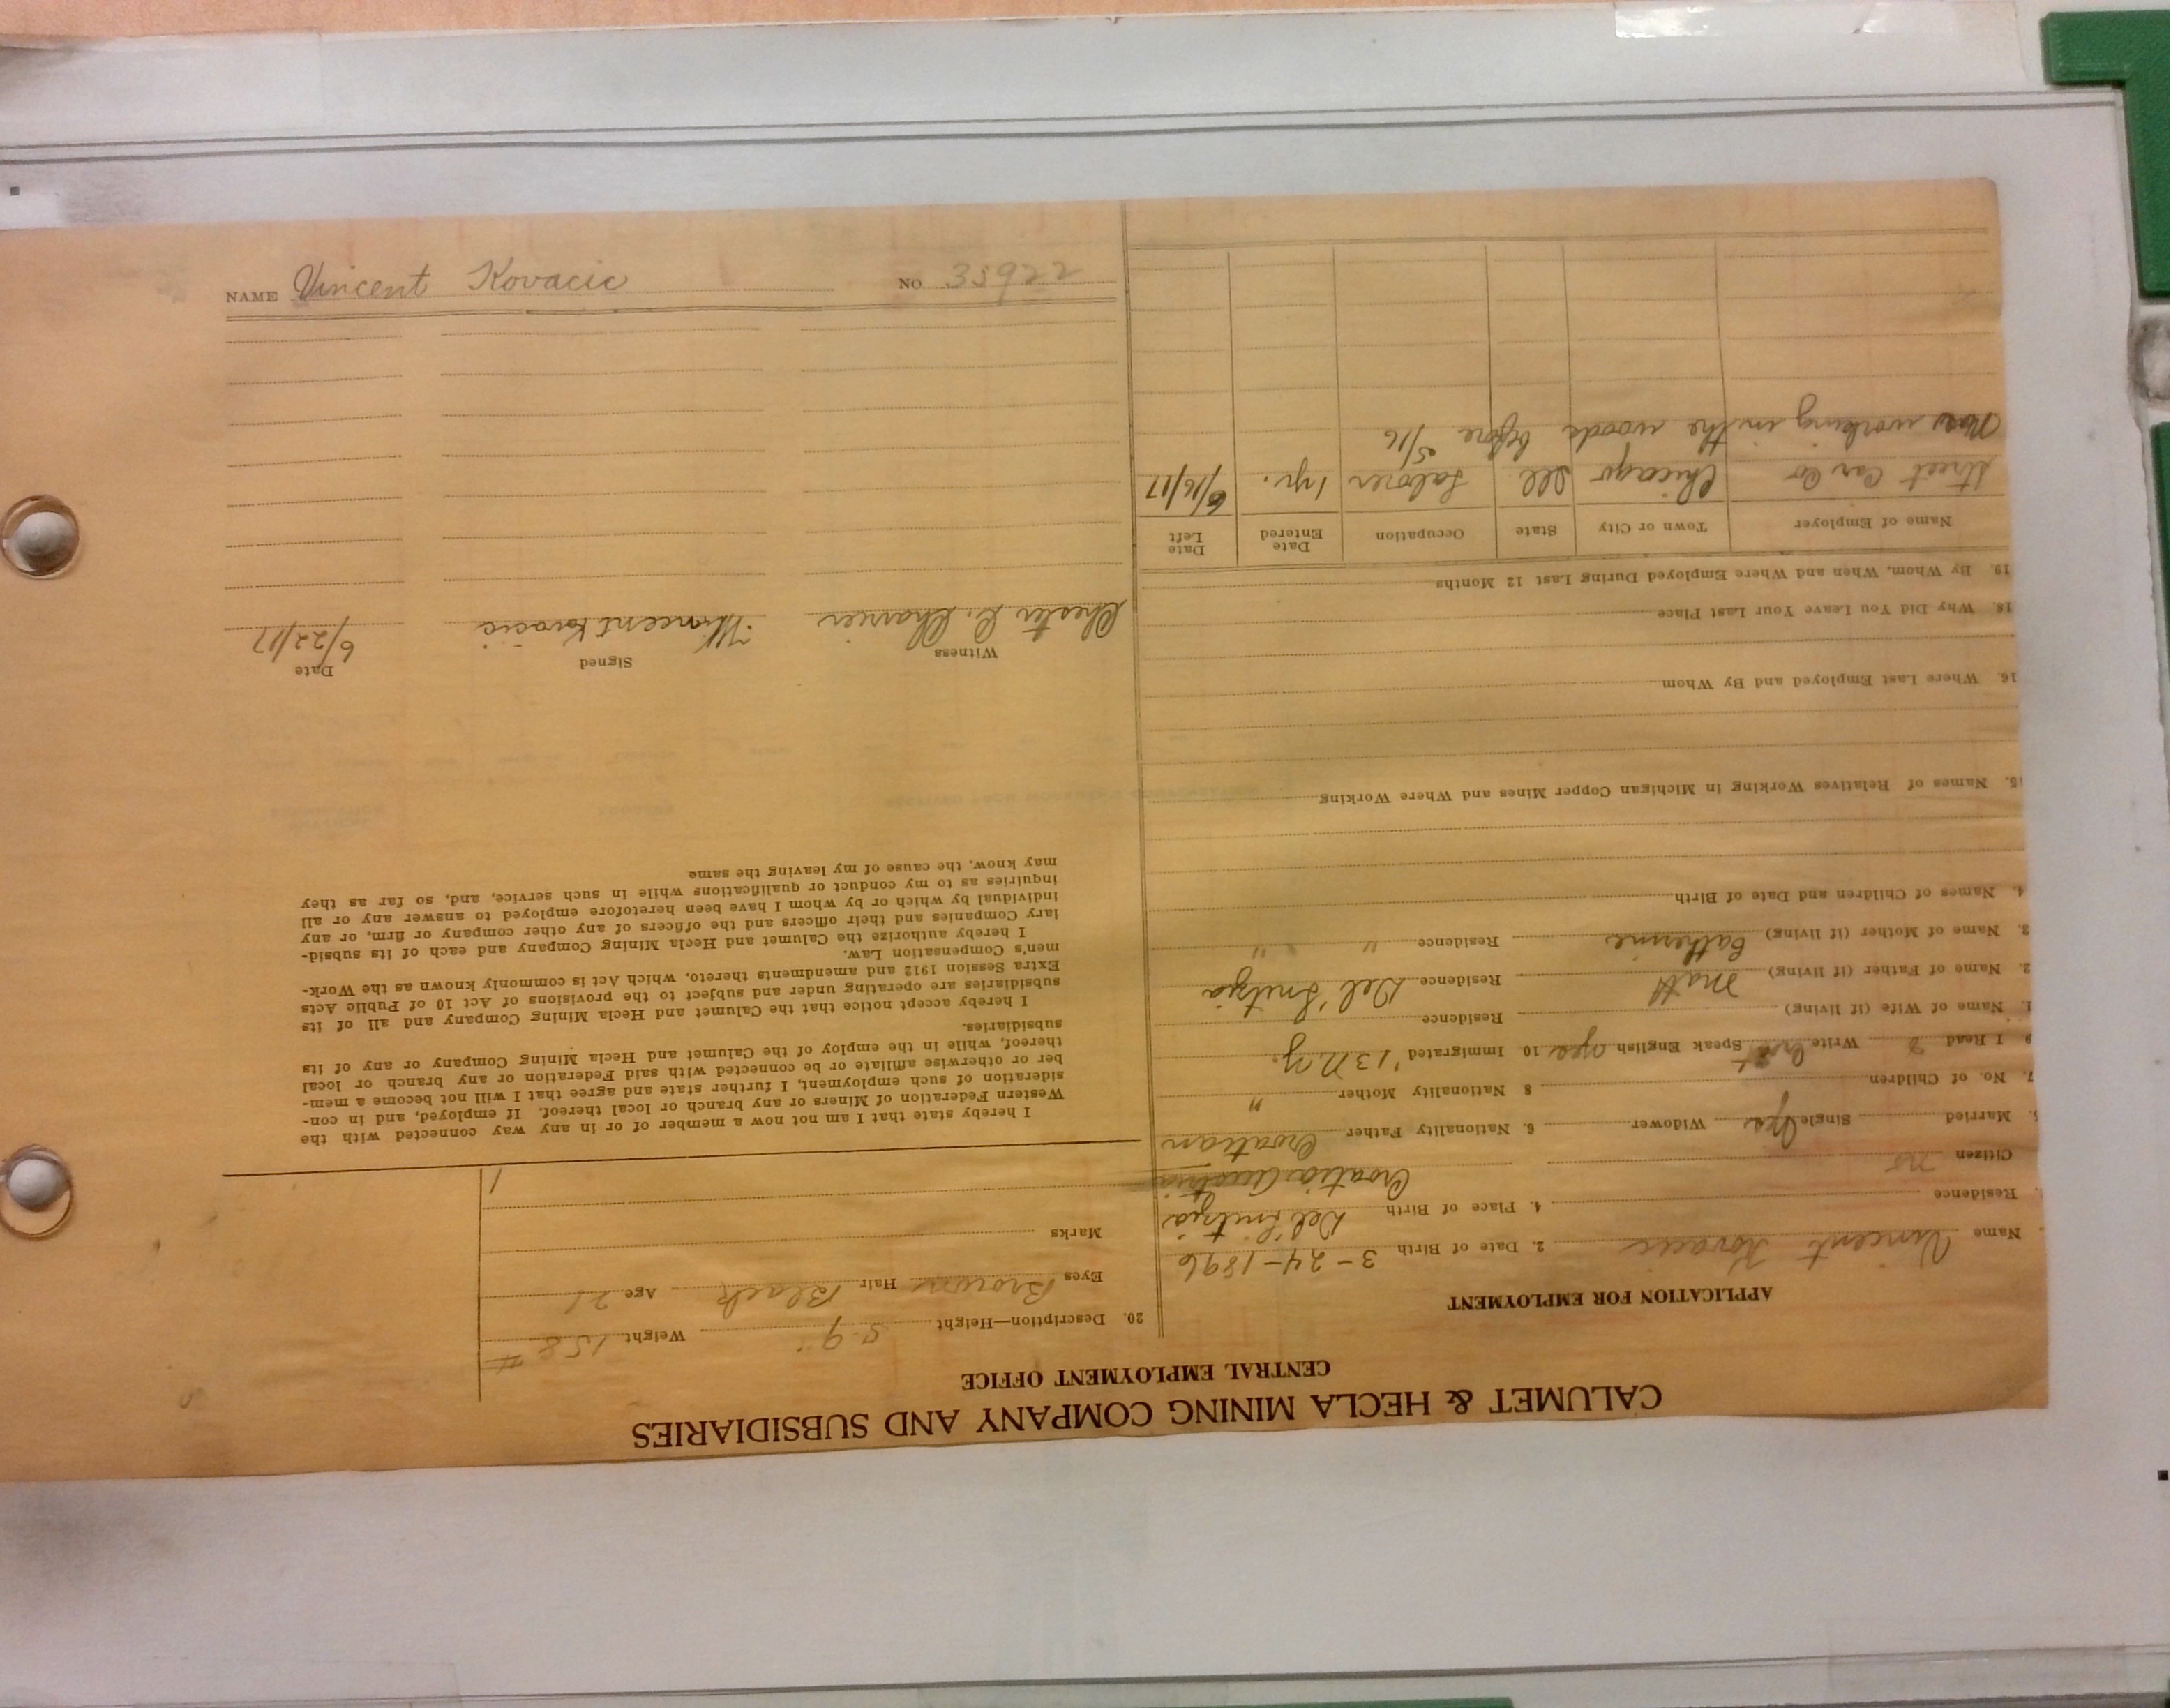 CALUMET & HECLA MINING COMPANY AND SUBSIDIARIES
CENTRAL EMPLOYMENT OFFICE
APPLICATION FOR EMPLOYMENT
Name Vincent Kovacic 2. Date of Birth 3-24-1896
Residence 4. Place of Birth
Croatia Austria
Citizen no
Married Single yes Widower 6. Nationality Father Croatian
7. No. of Children 8 Nationality Mother "
9 I Read Write Croat Speak English yes 10. Immigrated '13 N.Y.
1. Name of Wife (if living) Residence
2. Name of Father (if living) Matt Residence
3. Name of Mother (if living) Catherine Residence " " "
4. Names of Children and Date of Birth
15. Names of Relatives Working in Michigan Copper Mines and Where Working
16. Where Last Employed and By Whom
18. Why Did You Leave Your Last Place
19. By Whom, When and Where Employed During Last 12 Months
Name of Employer Town or City State Occupation Date Entered Date Left
Street Car Co Chicago Ill Laborer 1 yr. 6/16/17
Was working in the woods before 5/16
20. Description—Height 5.9" Weight 158#
Eyes Brown Hair Black Age 21
Marks
I hereby state that I am not now a member of or in any way connected with the
Western Federation of Miners or any branch or local thereof. If employed, and in con-
sideration of such employment, I further state and agree that I will not become a mem-
ber or otherwise affiliate or be connected with said Federation or any branch or local
thereof, while in the employ of the Calumet and Hecla Mining Company or any of its
subsidiaries.
I hereby accept notice that the Calumet and Hecla Mining Company and all of its
subsidiaries are operating under and subject to the provisions of Act 10 of Public Acts
Extra Session 1912 and amendments thereto, which Act is commonly known as the Work-
men's Compensation Law.
I hereby authorize the Calumet and Hecla Mining Company and each of its subsid-
iary Companies and their officers and the officers of any other company or firm, or any
individual by which or by whom I have been heretofore employed to answer any or all
inquiries as to my conduct or qualifications while in such service, and, so far as they
may know, the cause of my leaving the same
Witness Signed Date
Chester C. Vincent Kovacic 6/22/17
NAME Vincent Kovacic NO 35922